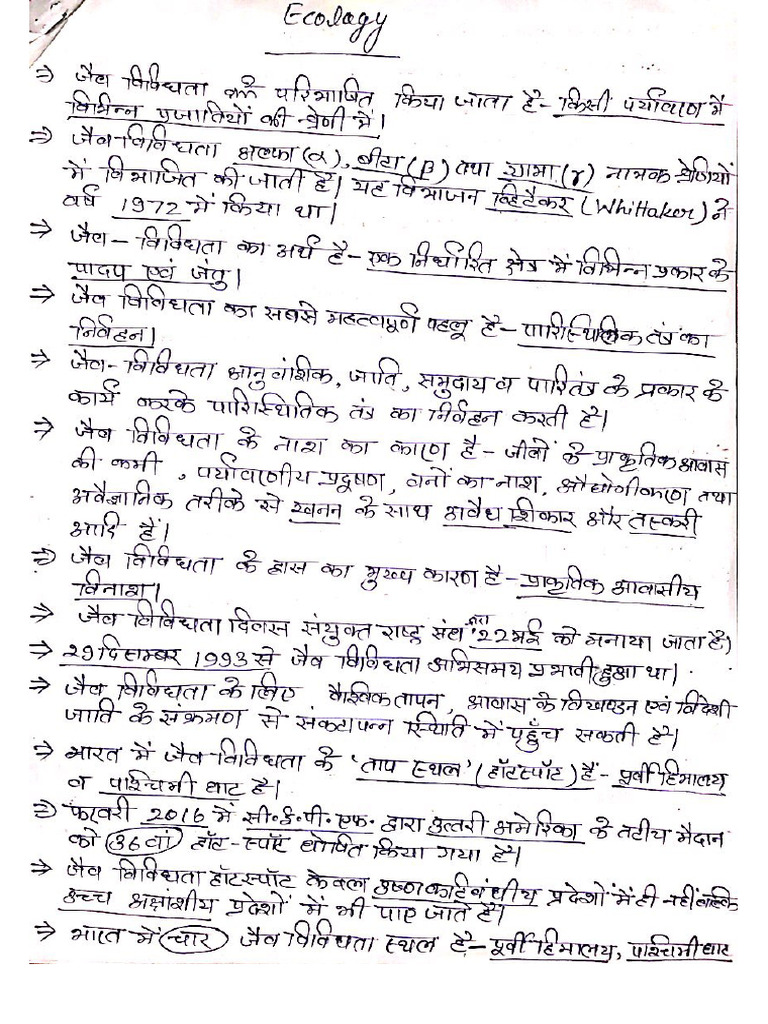 Ecology
⇒ जैव विविधता को परिभाषित किया जाता है- किसी पर्यावरण में
विभिन्न प्रजातियों की श्रेणी में।
⇒ जैव-विविधता अल्फा (α), बीटा (β) तथा गामा (γ) नामक श्रेणियों
में विभाजित की जाती है। यह विभाजन व्हिटैकर (Whittaker) ने
वर्ष 1972 में किया था।
⇒ जैव – विविधता का अर्थ है – एक निर्धारित क्षेत्र में विभिन्न प्रकार के
पादप एवं जंतु।
⇒ जैव विविधता का सबसे महत्वपूर्ण पहलू है – पारिस्थितिक तंत्र का
निर्वहन।
⇒ जैव- विविधता आनुवंशिक, जाति, समुदाय व पारितंत्र के प्रकार के
कार्य करके पारिस्थितिक तंत्र का निर्वहन करती है।
⇒ जैव विविधता के नाश का कारण है – जीवों के प्राकृतिक आवास
की कमी , पर्यावरणीय प्रदूषण, वनों का नाश, औद्योगीकरण तथा
अवैज्ञानिक तरीके से खनन के साथ अवैध शिकार और तस्करी
आदि हैं।
⇒ जैव विविधता के ह्रास का मुख्य कारण है – प्राकृतिक आवासीय
विनाश।
⇒ जैव विविधता दिवस संयुक्त राष्ट्र संघ द्वारा 22 मई को मनाया जाता है।
⇒ 29 दिसम्बर 1993 से जैव विविधता अभिसमय प्रभावी हुआ था।
⇒ जैव विविधता के लिए वैश्विक तापन, आवास के विखण्डन एवं विदेशी
जाति के संक्रमण से संकटापन्न स्थिति में पहुँच सकती है।
⇒ भारत में जैव विविधता के 'ताप स्थल' (हॉटस्पॉट) हैं – पूर्वी हिमालय
व पाश्चिमी घाट है।
⇒ फरवरी 2016 में सी॰ई॰पी॰एफ॰ द्वारा उत्तरी अमेरिका के तटीय मैदान
को 36वां हॉट-स्पॉट घोषित किया गया है।
⇒ जैव विविधता हॉटस्पॉट केवल उष्णकटिबंधीय प्रदेशों में ही नहीं बल्कि
उच्च अक्षांशीय प्रदेशों में भी पाए जाते हैं।
⇒ भारत में चार जैव विविधता स्थल है – पूर्वी हिमालय, पश्चिमी घाट